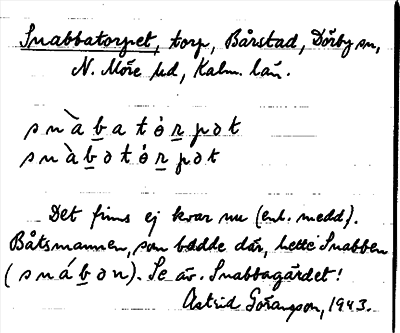 Snabbatorpet, torp, Bårstad, Dörby sn,
N. Möre hd, Kalm. län.
snàbatȯrpət
snàbətȯrpət
Det finns ej kvar nu (enl. medd).
Båtsmannen, som bodde där, hette Snabben
(snábən). Se äv. Snabbagärdet!
Astrid Göransson, 1943.